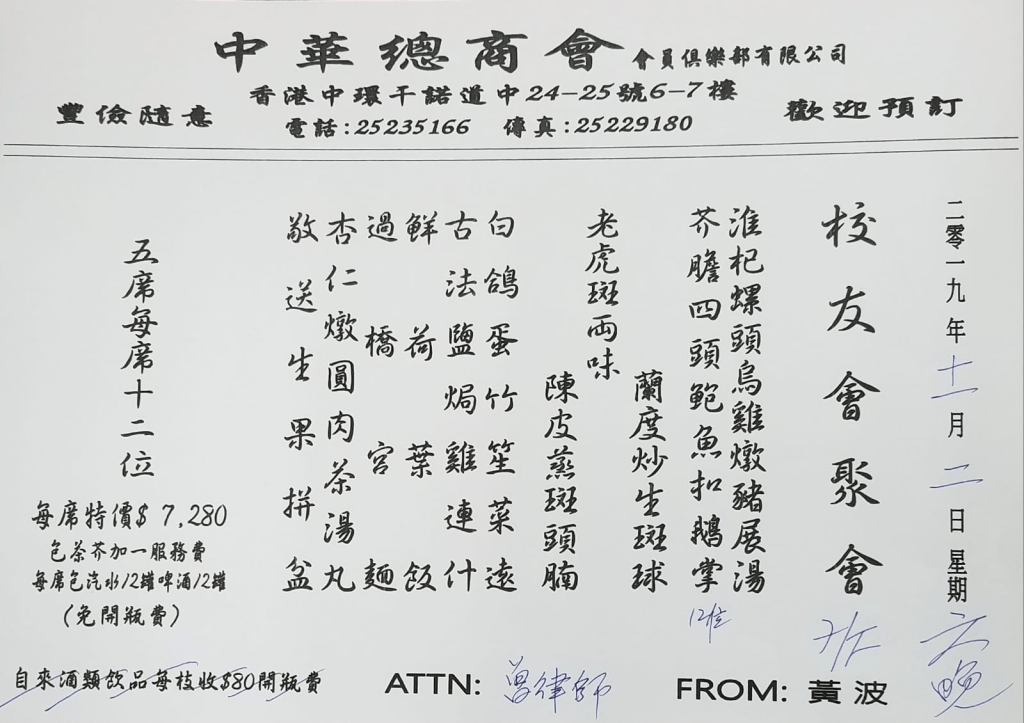 中華總商會會員俱樂部有限公司
香港中環干諾道中24-25號6-7樓
豐儉隨意
電話:25235166 傳真:25229180
歡迎預訂
二零一九年十一月二日星期六晚
校友會聚會
淮杞螺頭烏雞燉豬展湯
芥膽四頭鮑魚扣鵝掌
12位
蘭度炒生斑球
老虎斑両味
陳皮蒸斑頭腩
白鴿蛋竹笙菜遠
古法鹽焗雞連什
鮮荷葉飯
過橋宮麵
杏仁燉圓肉茶湯丸
敬送生果拼盆
五席每席十二位
每席特價$ 7,280
包茶芥加一服務費
每席包汽水12罐啤酒12罐
(免開瓶費)
自來酒類飲品每枝收$80開瓶費
ATTN: 曾律師
FROM: 黃波